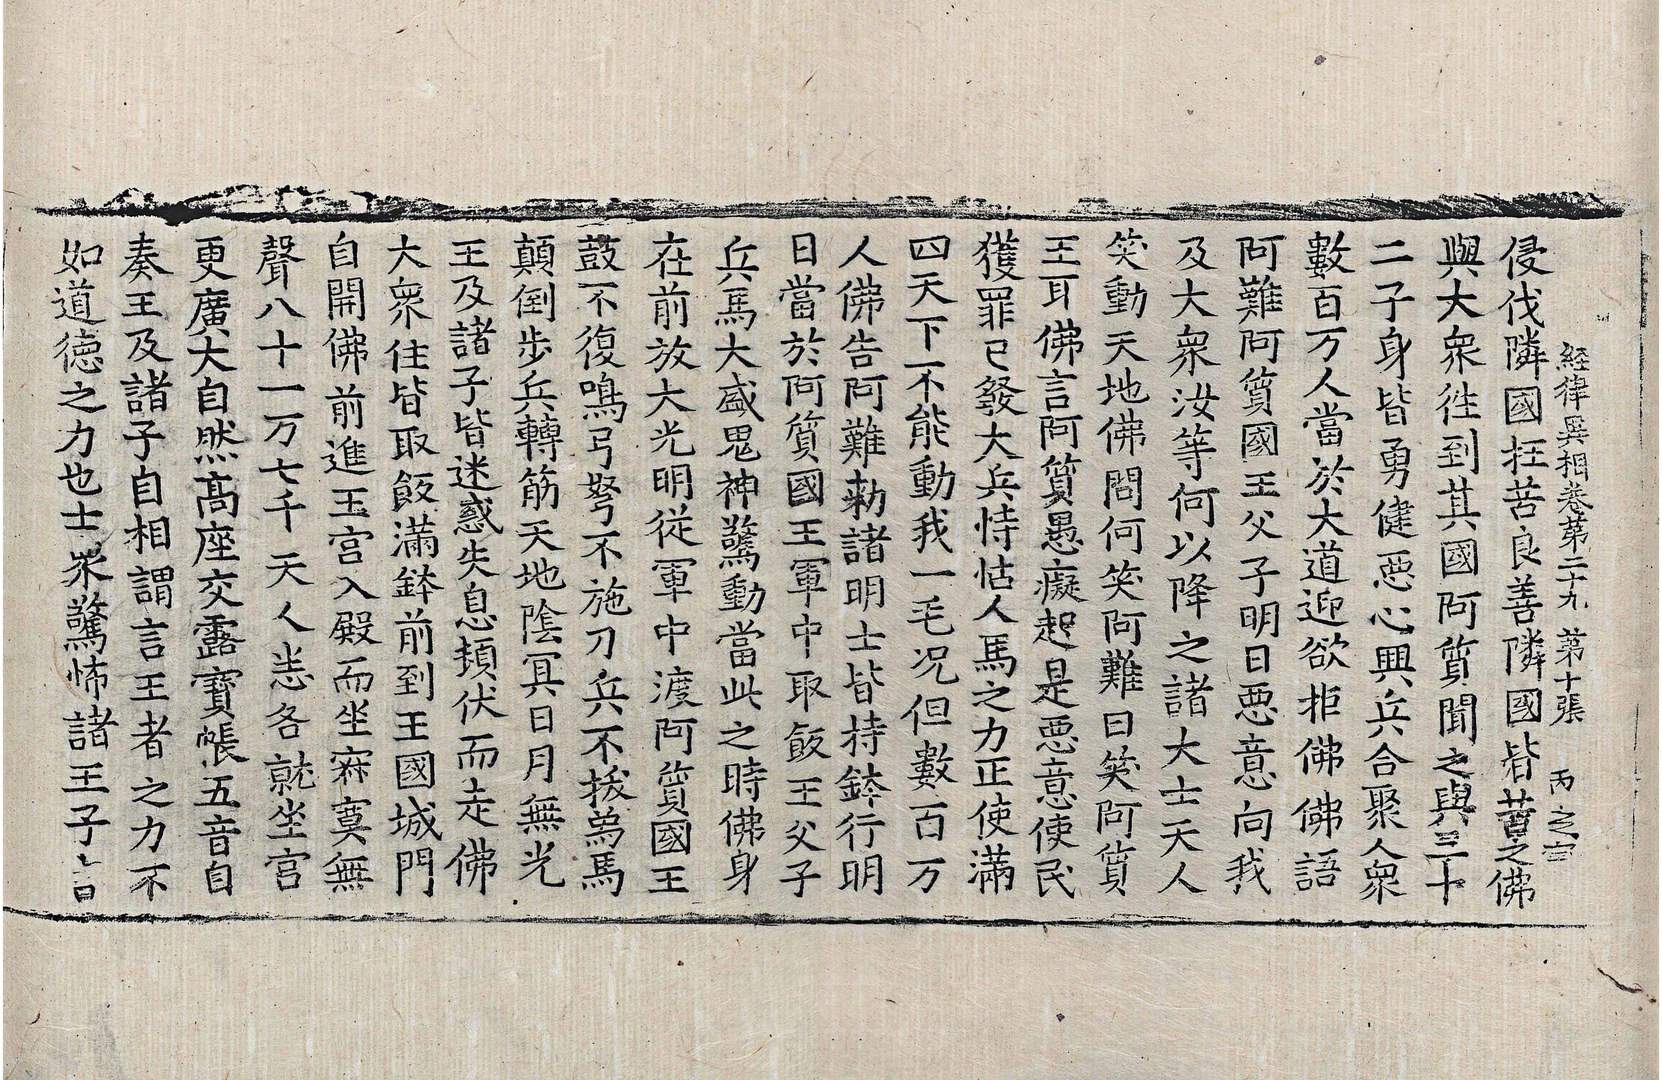 經律異相卷第二十九 第十張 丙
侵伐隣國抂苦良善隣國皆苦之佛
與大衆徃到其國阿質聞之與三十
二子身皆勇健惡心興兵合聚人衆
數百万人當於大道迎欲拒佛佛語
阿難阿質國王父子明日惡意向我
及大衆汝等何以降之諸大士天人
笑動天地佛問何笑阿難曰笑阿質
王耳佛言阿質愚癡起是惡意使民
獲罪已發大兵恃怙人馬之力正使滿
四天下不能動我一毛况但數百万
人佛告阿難勑諸明士皆持鉢行明
日當於阿質國王軍中取飯王父子
兵馬大盛鬼神驚動當此之時佛身
在前放大光明從軍中渡阿質國王
鼓不復鳴弓弩不施刀兵不拔為馬
顛倒步兵轉筋天地陰冥日月無光
王及諸子皆迷惑失息頓伏而走佛
大衆住皆取飯滿鉢前到王國城門
自開佛前進王宮入殿而坐寂寞無
聲八十一万七千天人恙各就坐宮
更廣大自然高座交露寶帳五音自
奏王及諸子自相謂言王者之力不
如道德之力也士衆驚怖諸王子言